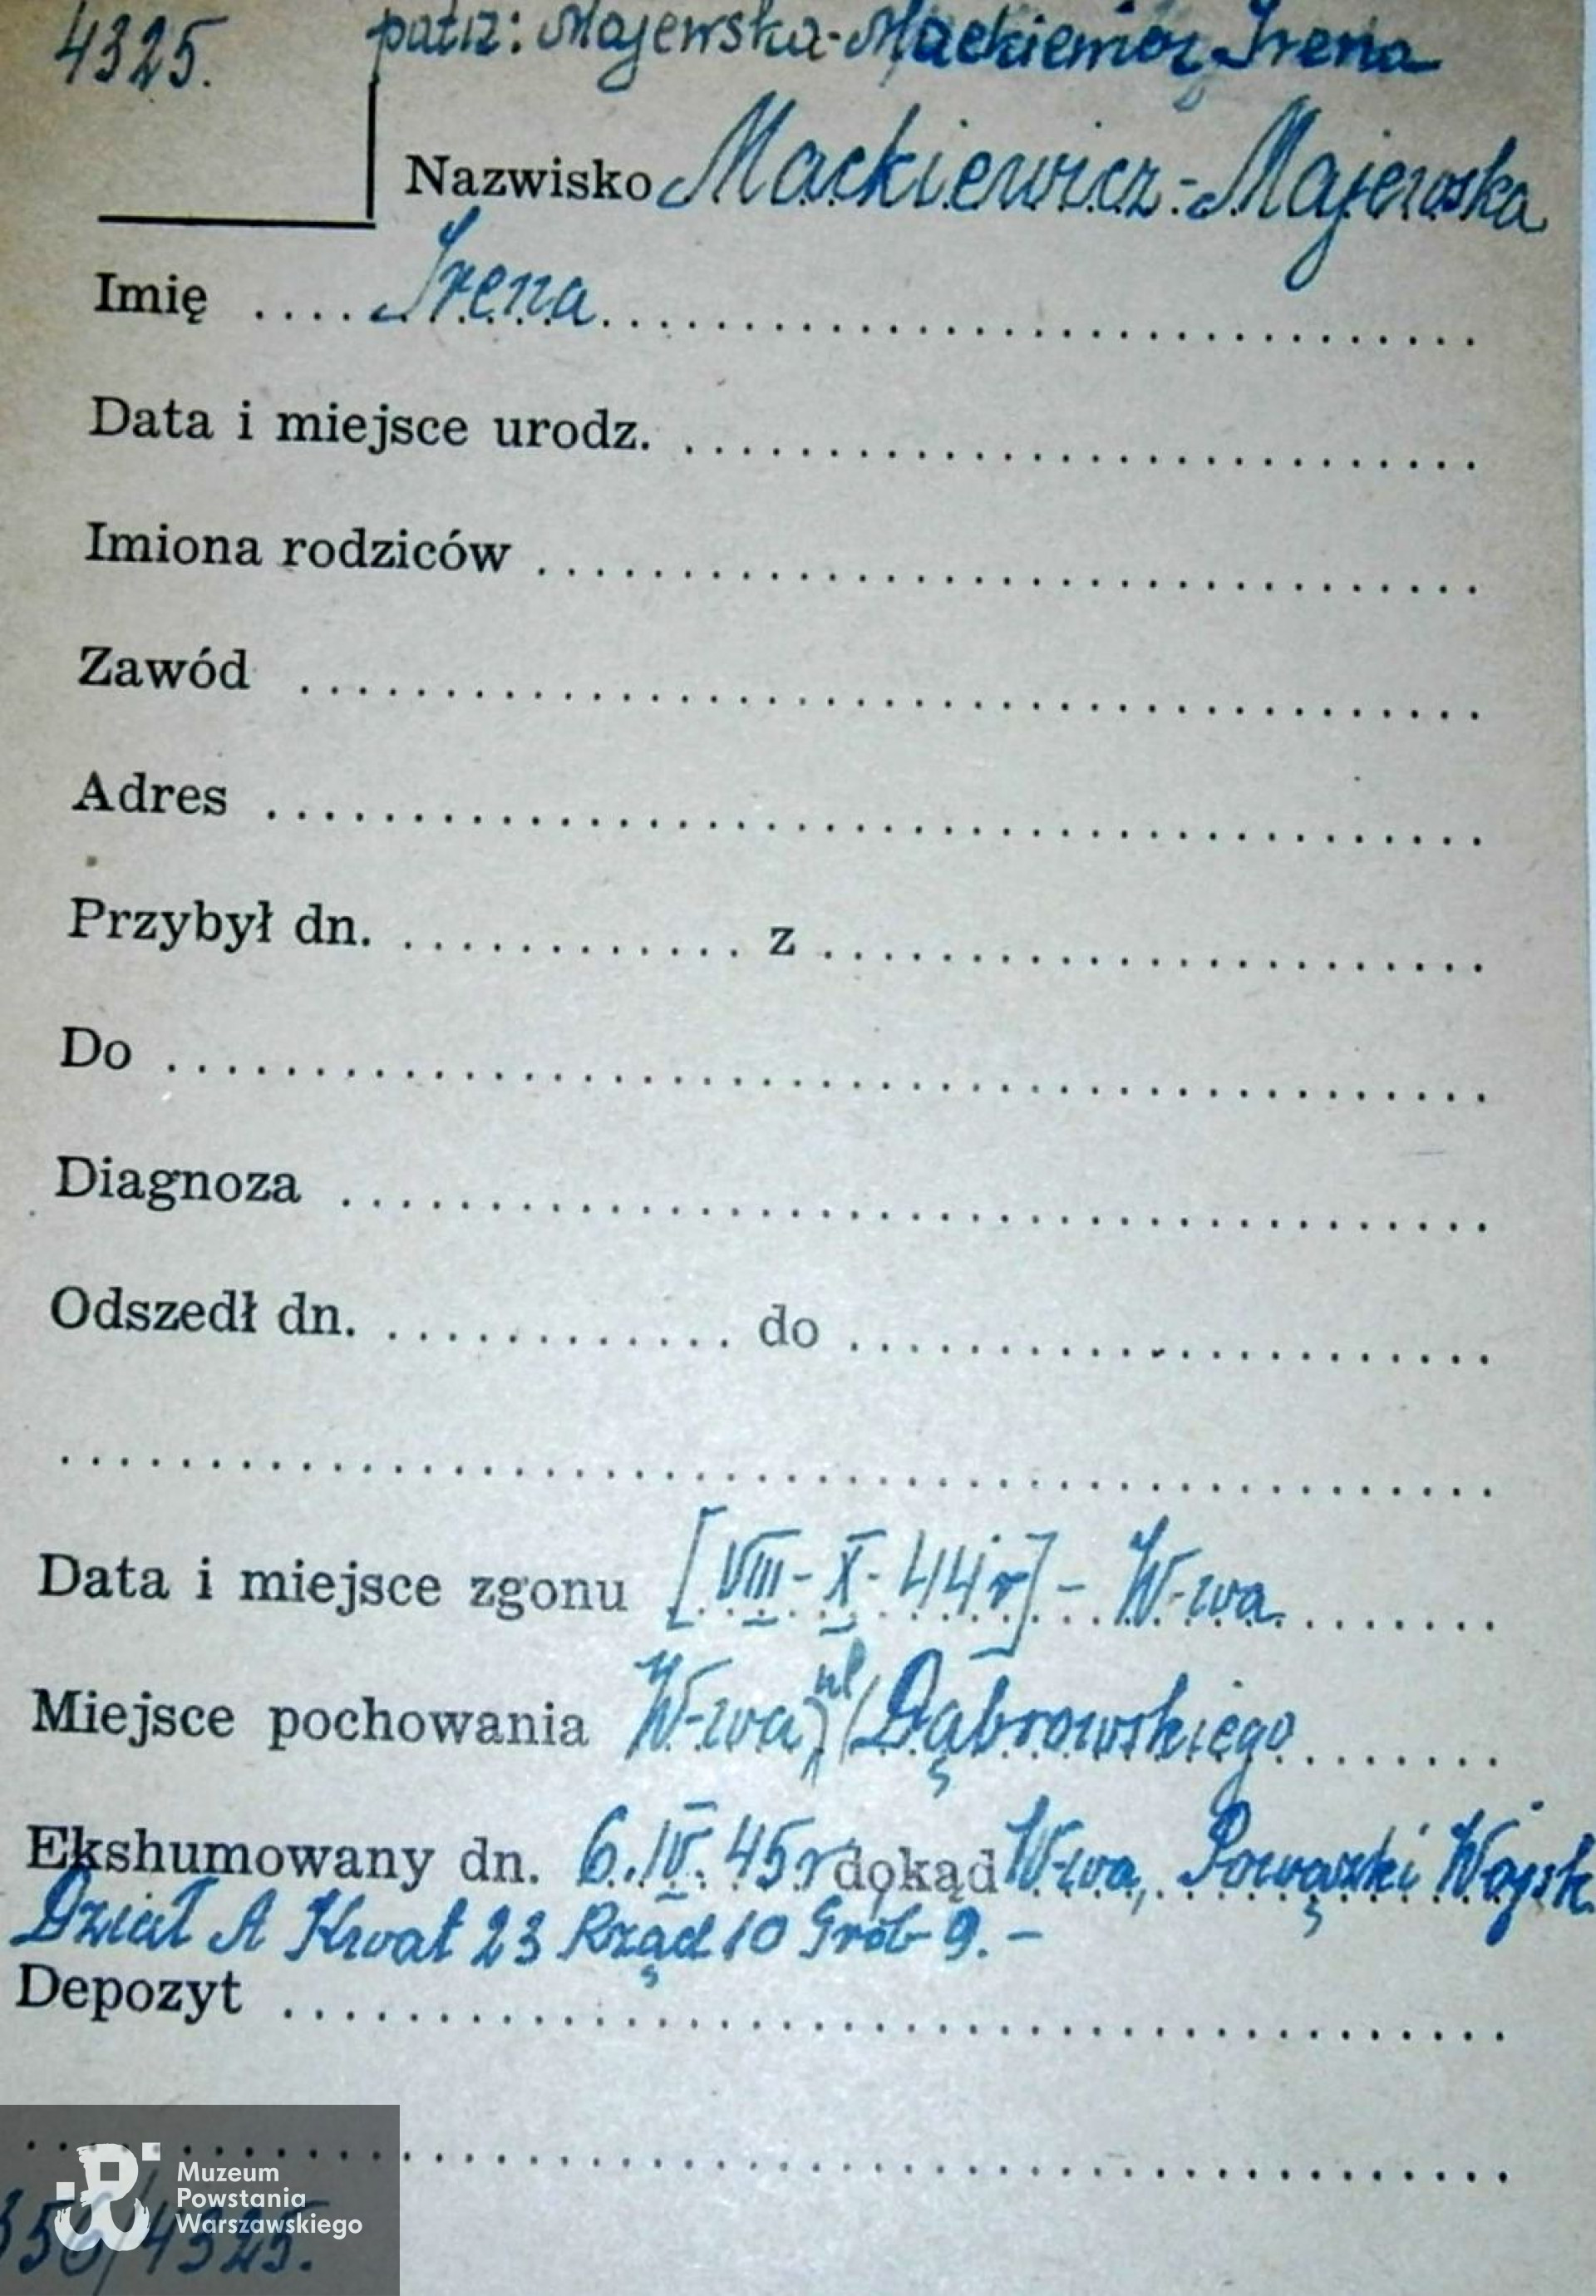 4325. patrz: Majewska-Mackiewicz Irena
Nazwisko Mackiewicz-Majewska
Imię .... Irena
Data i miejsce urodz.
Imiona rodziców
Zawód
Adres
Przybył dn. z
Do
Diagnoza
Odszedł dn. do
Data i miejsce zgonu [VIII-X-44r] - W-wa
Miejsce pochowania W-wa, ul Dąbrowskiego
Ekshumowany dn. 6.IV.45r dokąd W-wa, Powązki Wojsk
Dział A Kwat 23 Rząd 10 Grób 9.-
Depozyt
Muzeum
Powstania
Warszawskiego
/4325.